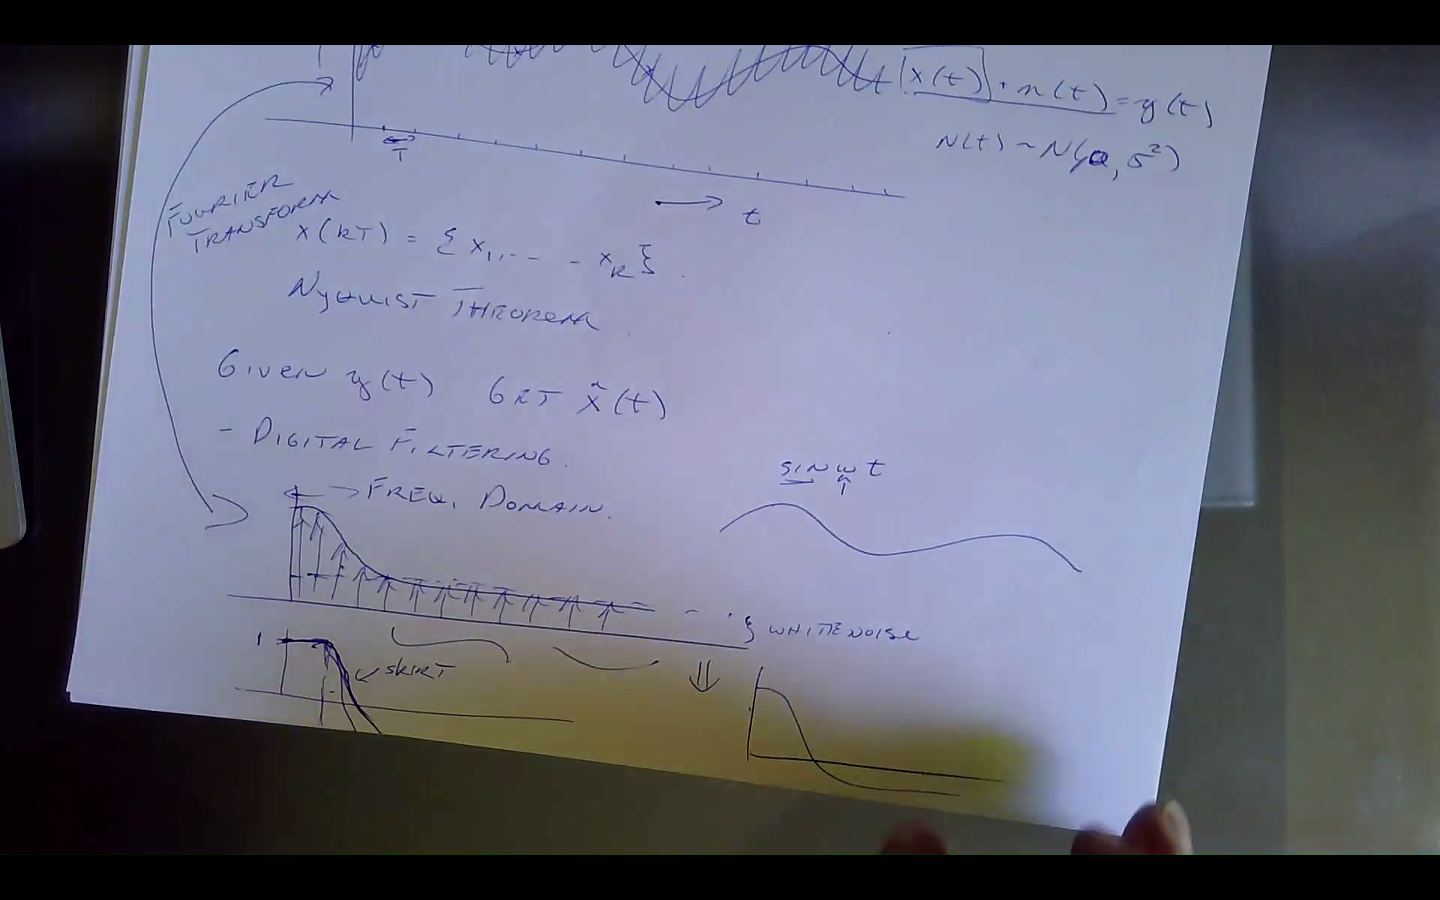 x(t) + n(t) = y(t)
N(t) ~ N(0, σ²)
T
t
FOURIER
TRANSFORM
x(kT) = { x1, -- - xk }.
NYQUIST THEOREM.
GIVEN y(t) GET x̂(t)
- DIGITAL FILTERING.
FREQ. DOMAIN.
SIN ω t
} WHITE NOISE
1
SKIRT